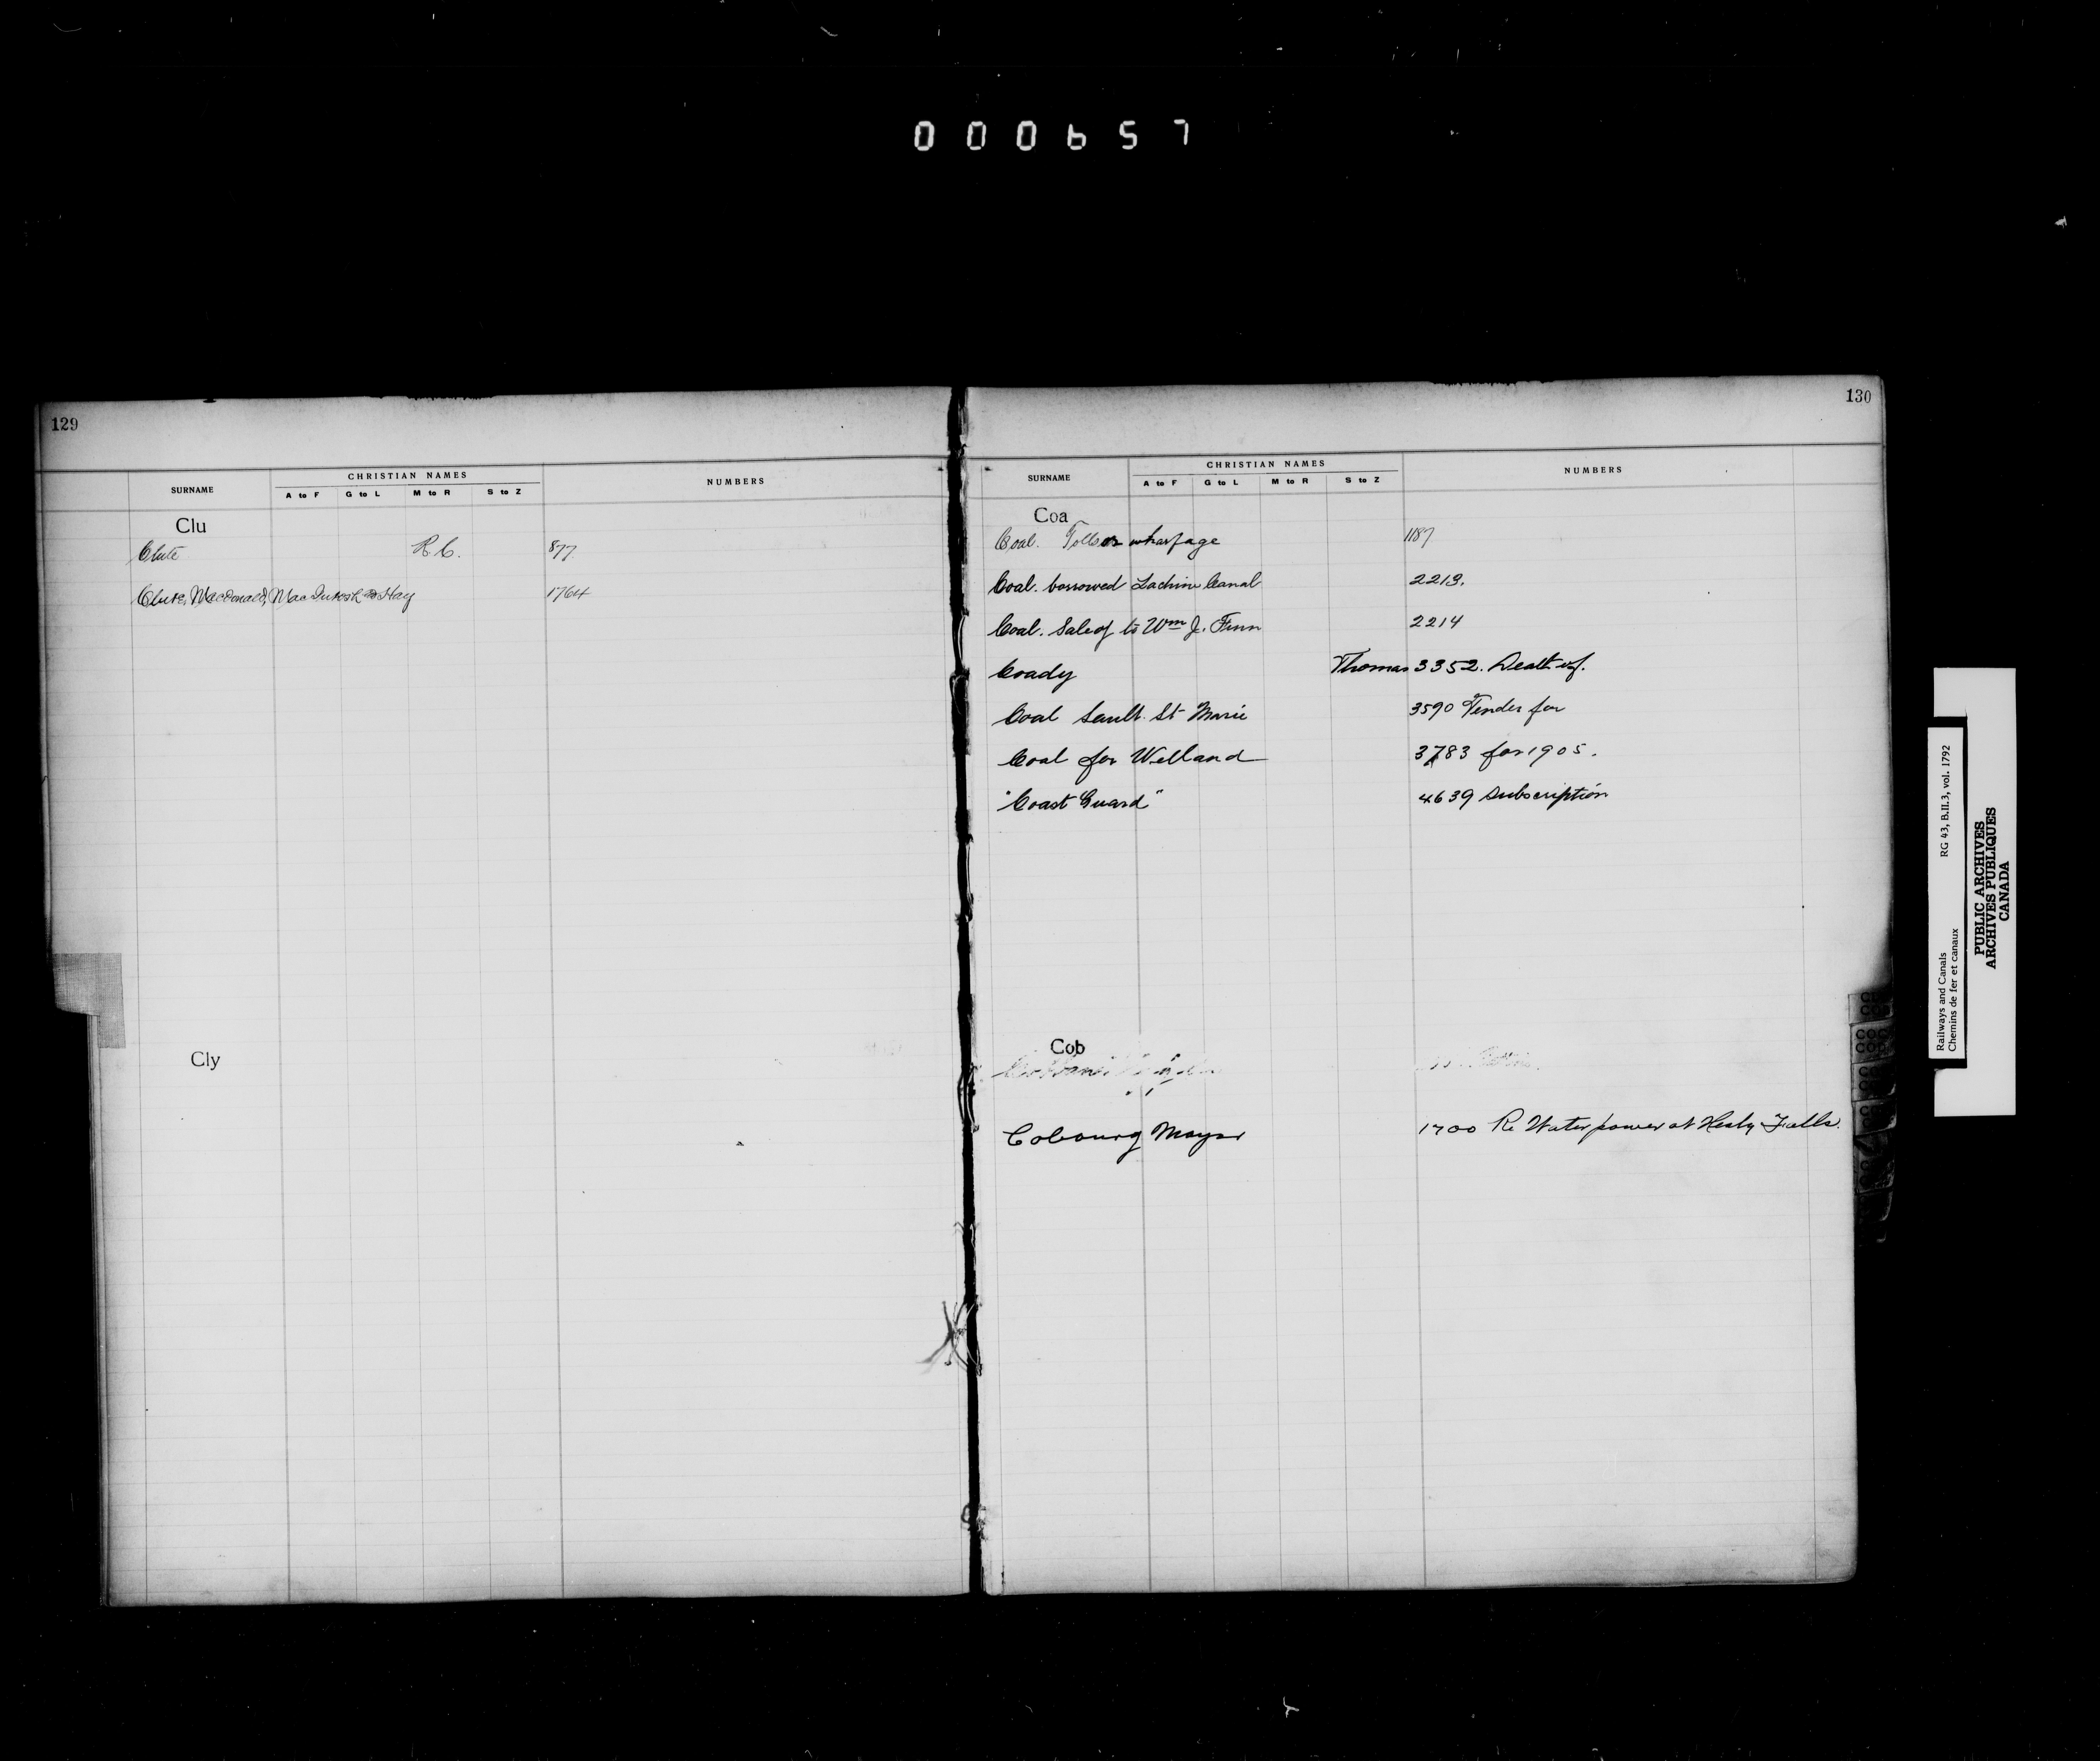 000657
129
SURNAME CHRISTIAN NAMES NUMBERS
A to F G to L M to R S to Z
Clu
Clute R. C. 877
Clute, Macdonald, MacIntosh and Hay 1764
Cly
130
SURNAME CHRISTIAN NAMES NUMBERS
A to F G to L M to R S to Z
Coa
Coal. Tolls on wharfage 1187
Coal. borrowed Lachine Canal 2213.
Coal. Sale of to Wm J. Finn 2214
Coady Thomas 3352. Death of.
Coal Sault St Marie 3590 Tender for
Coal for Welland 3783 for 1905.
"Coast Guard" 4639 Subscription
Cob
Cobourg Mayor 1700 Re Water power at Healy Falls.
Railways and Canals RG 43, B.II.3, vol. 1792
Chemins de fer et canaux
PUBLIC ARCHIVES
ARCHIVES PUBLIQUES
CANADA